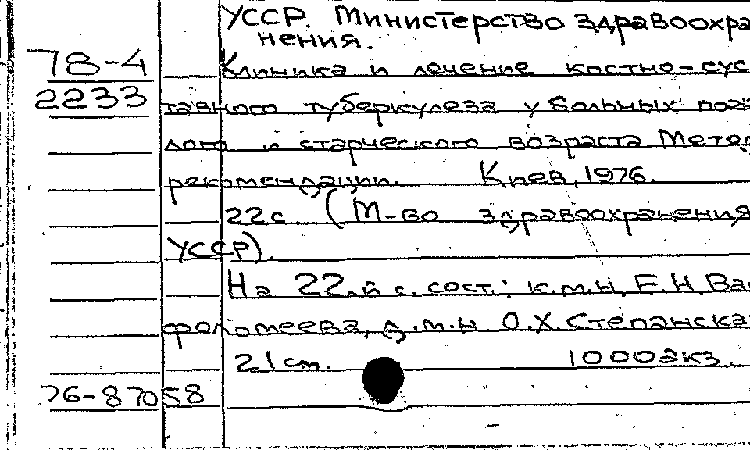 УССР. Министерство здравоохра
нения.
78-4 Клиника и лечение костно-сус
2233 тавного туберкулеза у больных пожи
лого и старческого возраста Метод
рекомендации. Киев, 1976.
22с. (М-во здравоохранения
УССР).
На 22-й с. сост.: к.м.н. Е.Н. Ва
фоломеева, д.м.н О.Х. Степанска
21 см. 1000экз.
76-87058